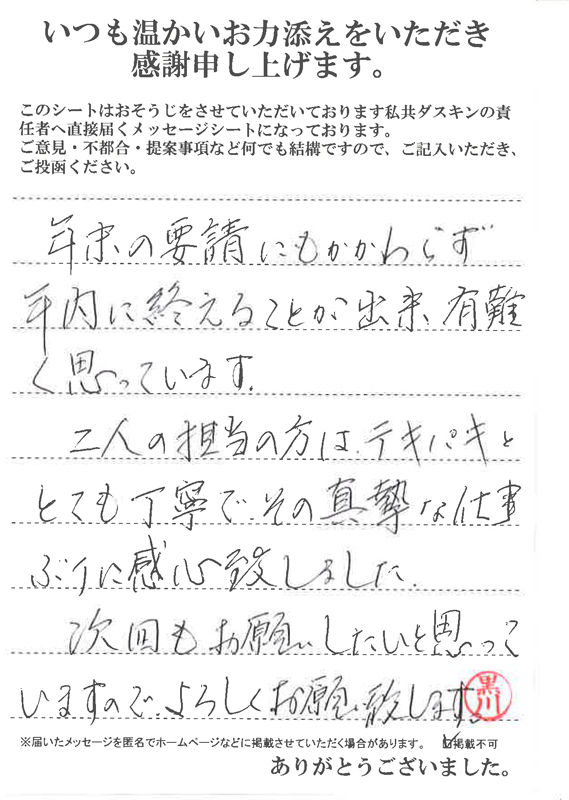 いつも温かいお力添えをいただき
感謝申し上げます。
このシートはおそうじをさせていただいております私共ダスキンの責
任者へ直接届くメッセージシートになっております。
ご意見・不都合・提案事項など何でも結構ですので、ご記入いただき、
ご投函ください。
年末の要請にもかかわらず
年内に終えることが出来、有難
く思っています。
二人の担当の方は、テキパキと
とても丁寧で、その真摯な仕事
ぶりに感心致しました。
次回もお願いしたいと思って
いますので、よろしくお願い致します。
黒川
※届いたメッセージを匿名でホームページなどに掲載させていただく場合があります。 ☑掲載不可
ありがとうございました。